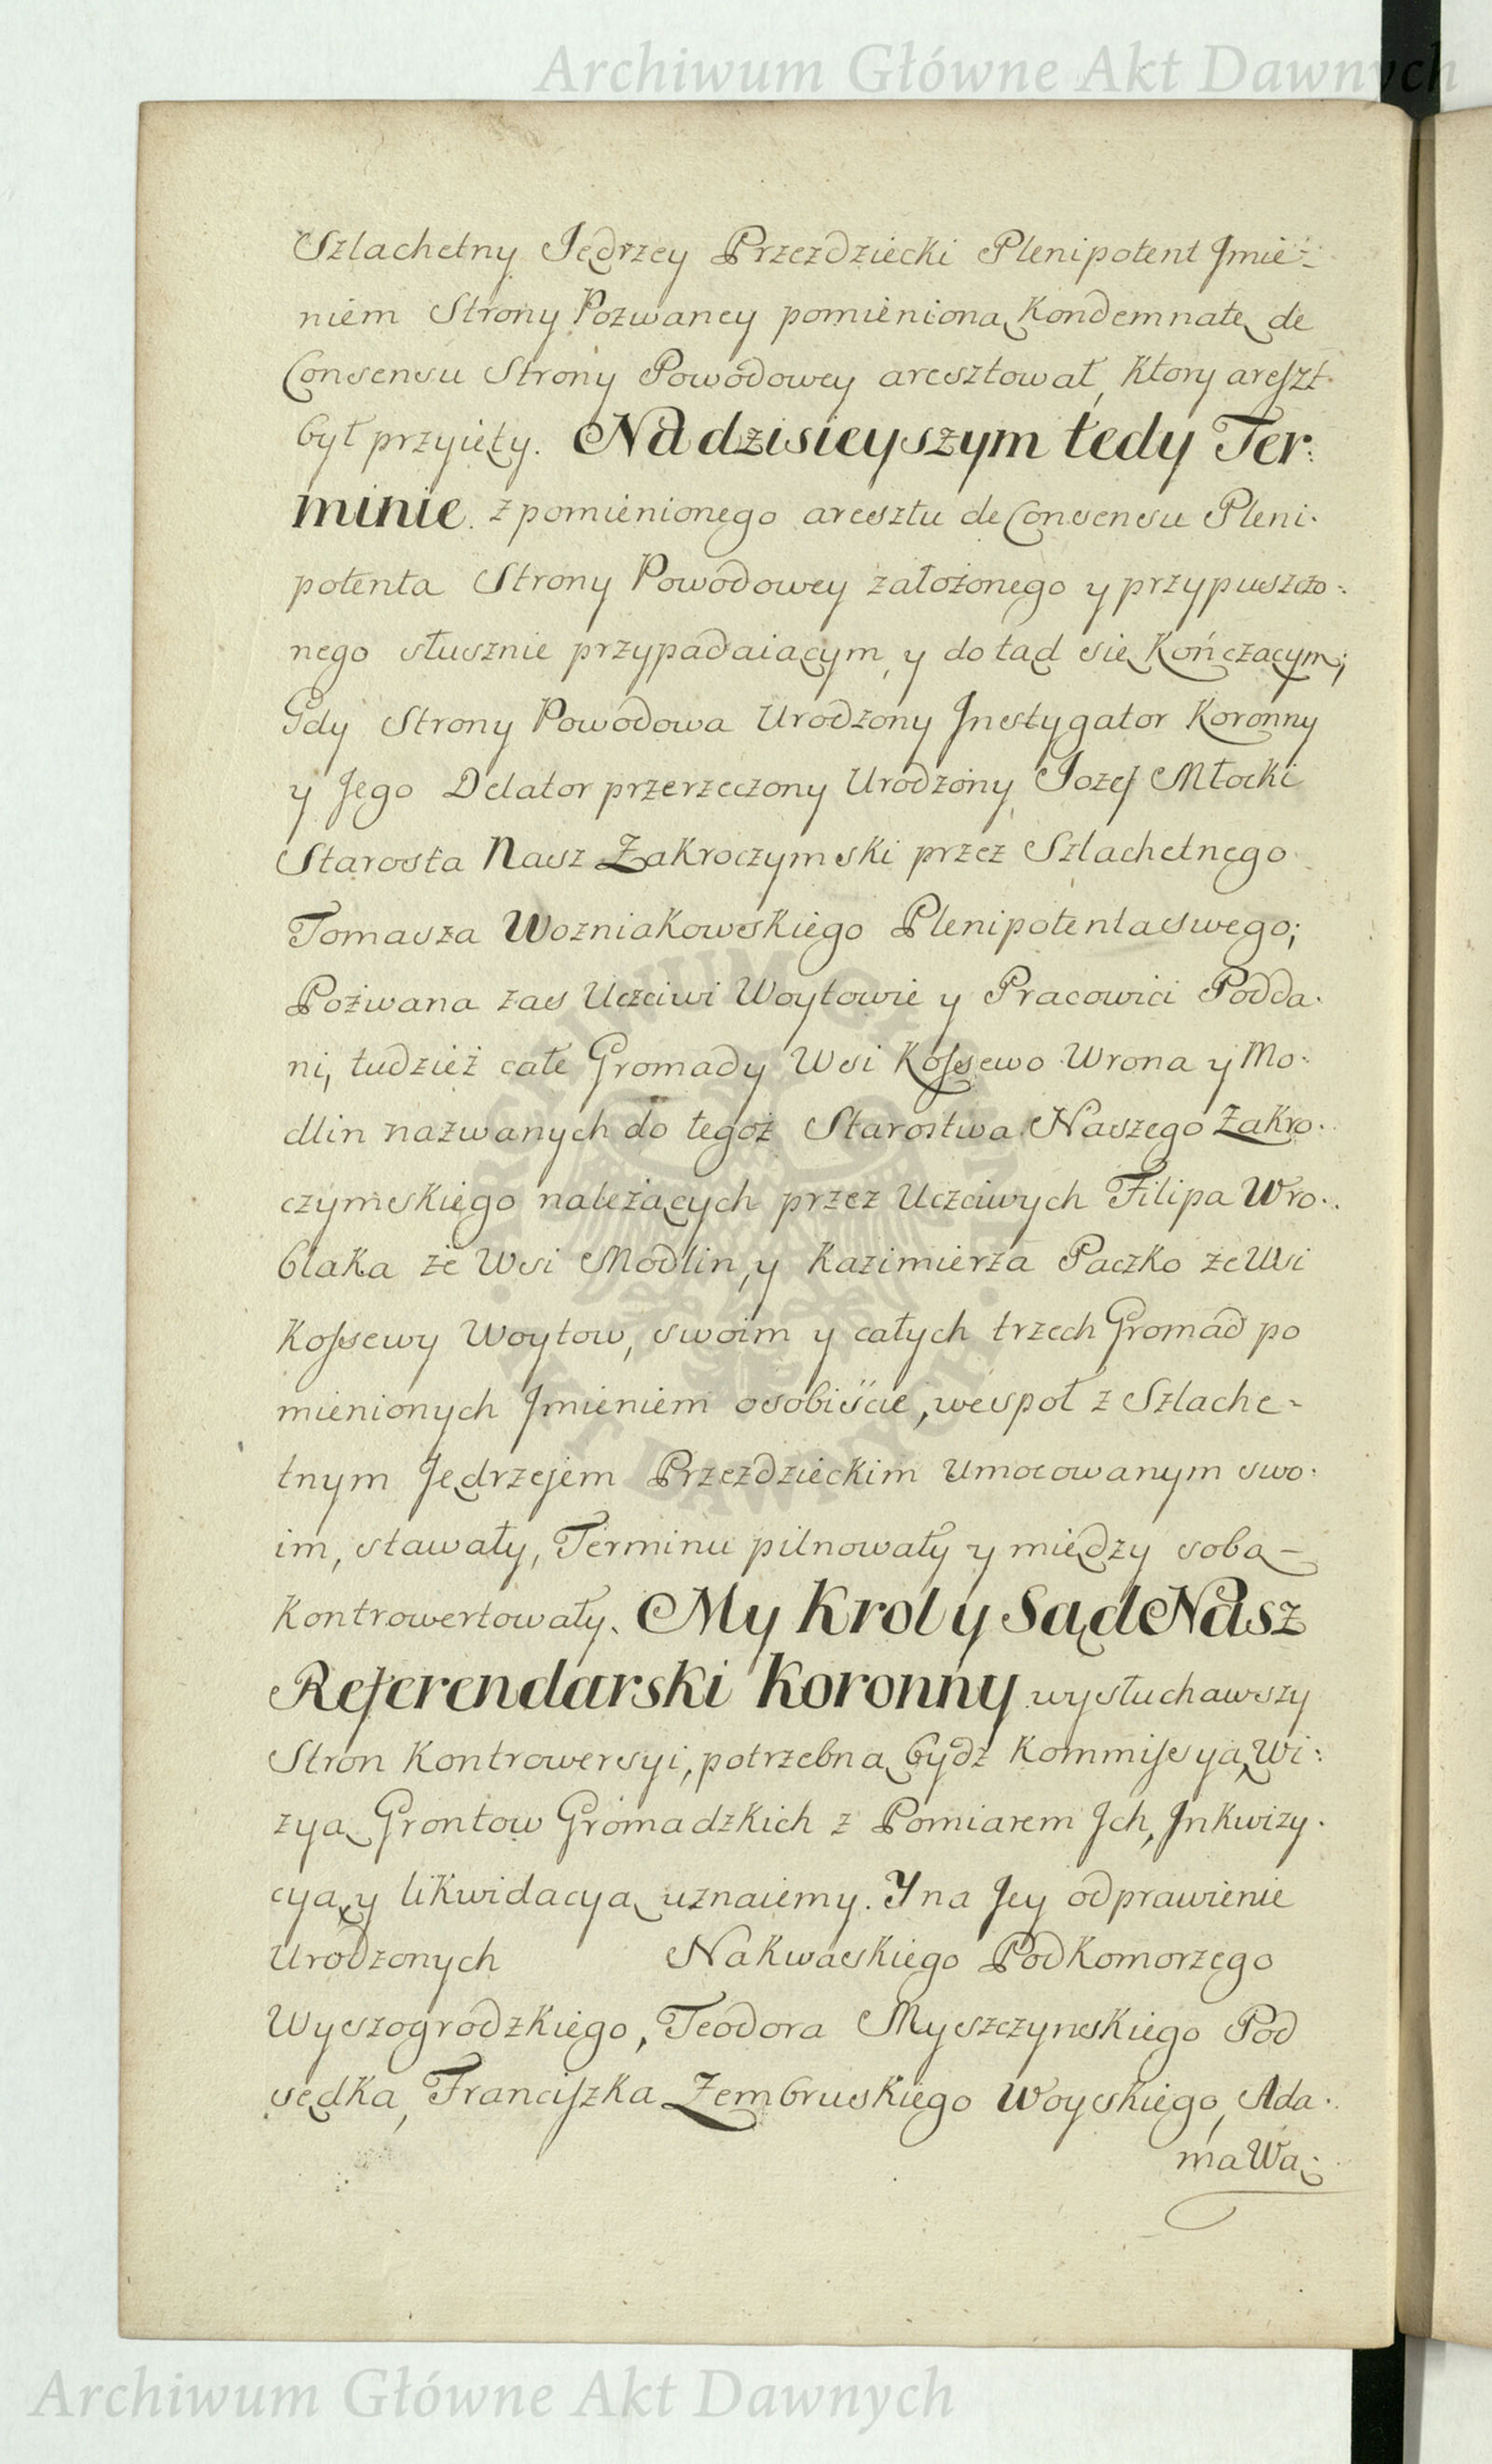 Archiwum Główne Akt Dawnych
Szlachetny Jędrzey Przezdziecki Plenipotent Jmie-
niem Strony Pozwaney pomienioną Kondemnatę de
Consensu Strony Powodowey aresztował, Ktory areszt
był przyięty. Na dzisieyszym tedy Ter:
minie z pomienionego aresztu de Consensu Pleni-
potenta Strony Powodowey założonego y przypuszczo:
nego słusznie przypadaiącym, y do tąd się Kończącym;
Gdy Strony Powodowa Urodzony Jnstygator Koronny
y Jego Delator przerzeczony Urodzony Jozef Młocki
Starosta Nasz Zakroczymski przez Szlachetnego
Tomasza Wozniakowskiego Plenipotenta swego;
Pozwana zas Uczciwi Woytowie y Pracowici Podda-
ni, tudzież całe Gromady Wsi Kossewo Wrona y Mo:
dlin nazwanych do tegoż Starostwa Naszego Zakro-
czymskiego należących przez Uczciwych Filipa Wro-
blaka ze Wsi Modlin, y Kazimierza Paczko ze Wsi
Kossewy Woytow, swoim y całych trzech Gromad po
mienionych Jmieniem osobiście, wespoł z Szlache-
tnym Jędrzejem Przezdzieckim Umocowanym swo-
im, stawały, Terminu pilnowały y między sobą
Kontrowertowały. My Krol y Sąd Nasz
Referendarski Koronny wysłuchawszy
Stron Kontrowersyi, potrzebną bydź Kommissyą, Wi:
zyą Grontow Gromadzkich z Pomiarem Jch, Jnkwizy-
cyą, y likwidacyą uznaiemy. Y na Jey odprawienie
Urodzonych Nakwaskiego Podkomorzego
Wyszogrodzkiego, Teodora Myszczynskiego Pod
sędka, Franciszka Zembruskiego Woyskiego, Ada-
ma Wą:
Archiwum Główne Akt Dawnych